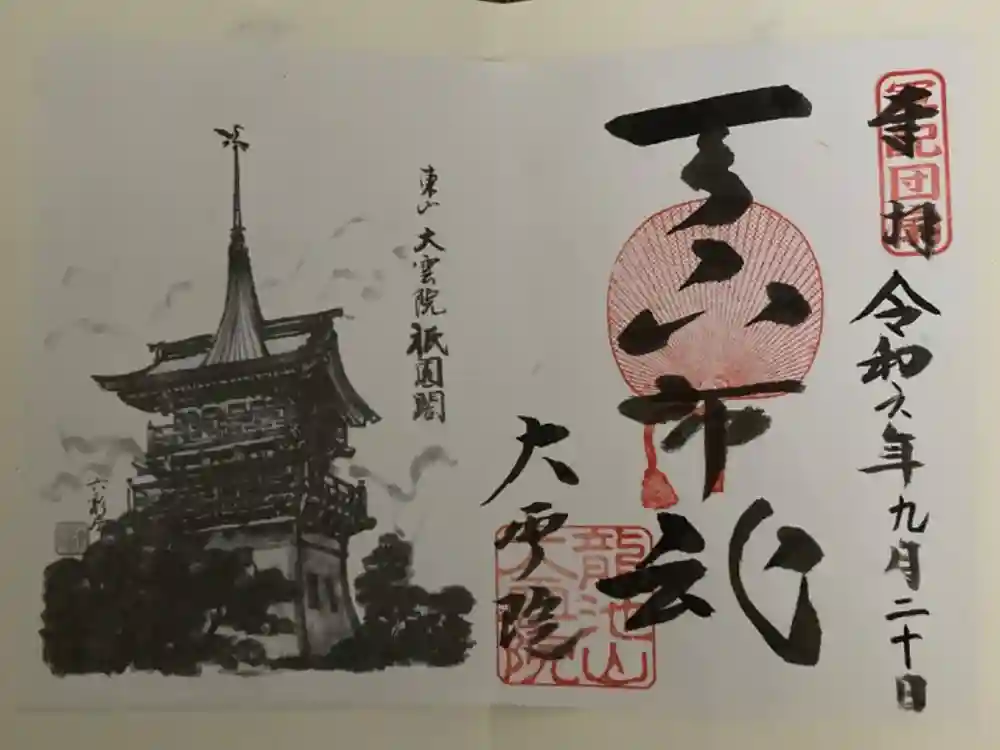 奉拝
軍配団扇
令和六年九月二十日
天下布武
大雲院
龍池山
大雲院
東山 大雲院 祇園閣